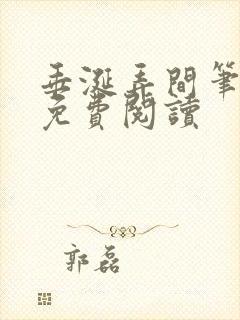 垂涎弄間筆
免費閱讀
郭磊